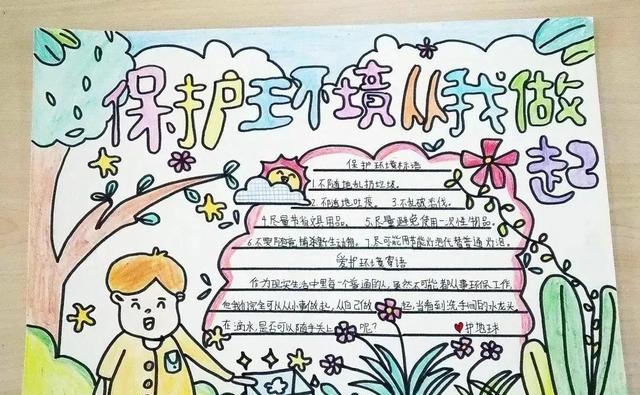 保护环境从我做起
保护环境标语
1.不随地乱扔垃圾。
2.不随地吐痰。 3.不乱砍乱伐。
4.尽量节省文具用品。 5.尽量避免使用一次性制品。
6.不要随意捕杀野生动物。 7.尽可能用节能灯泡代替普通灯泡。
爱护环境寄语
作为现实生活中里每一个普通的人,虽然不可能都从事环保工作,
但我们完全可以从小事做起,从自己做 起,当看到洗手间的水龙头
在滴水,是否可以随手关上 呢? 护地球